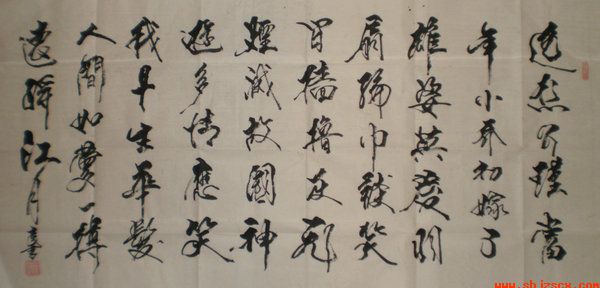 遥想公瑾當
年小乔初嫁了
雄姿英发羽
扇綸巾談笑
间檣擼灰飛
煙滅故國神
遊多情應笑
我早生華髮
人間如夢一樽
還酹江月
www.sbjzscx.c